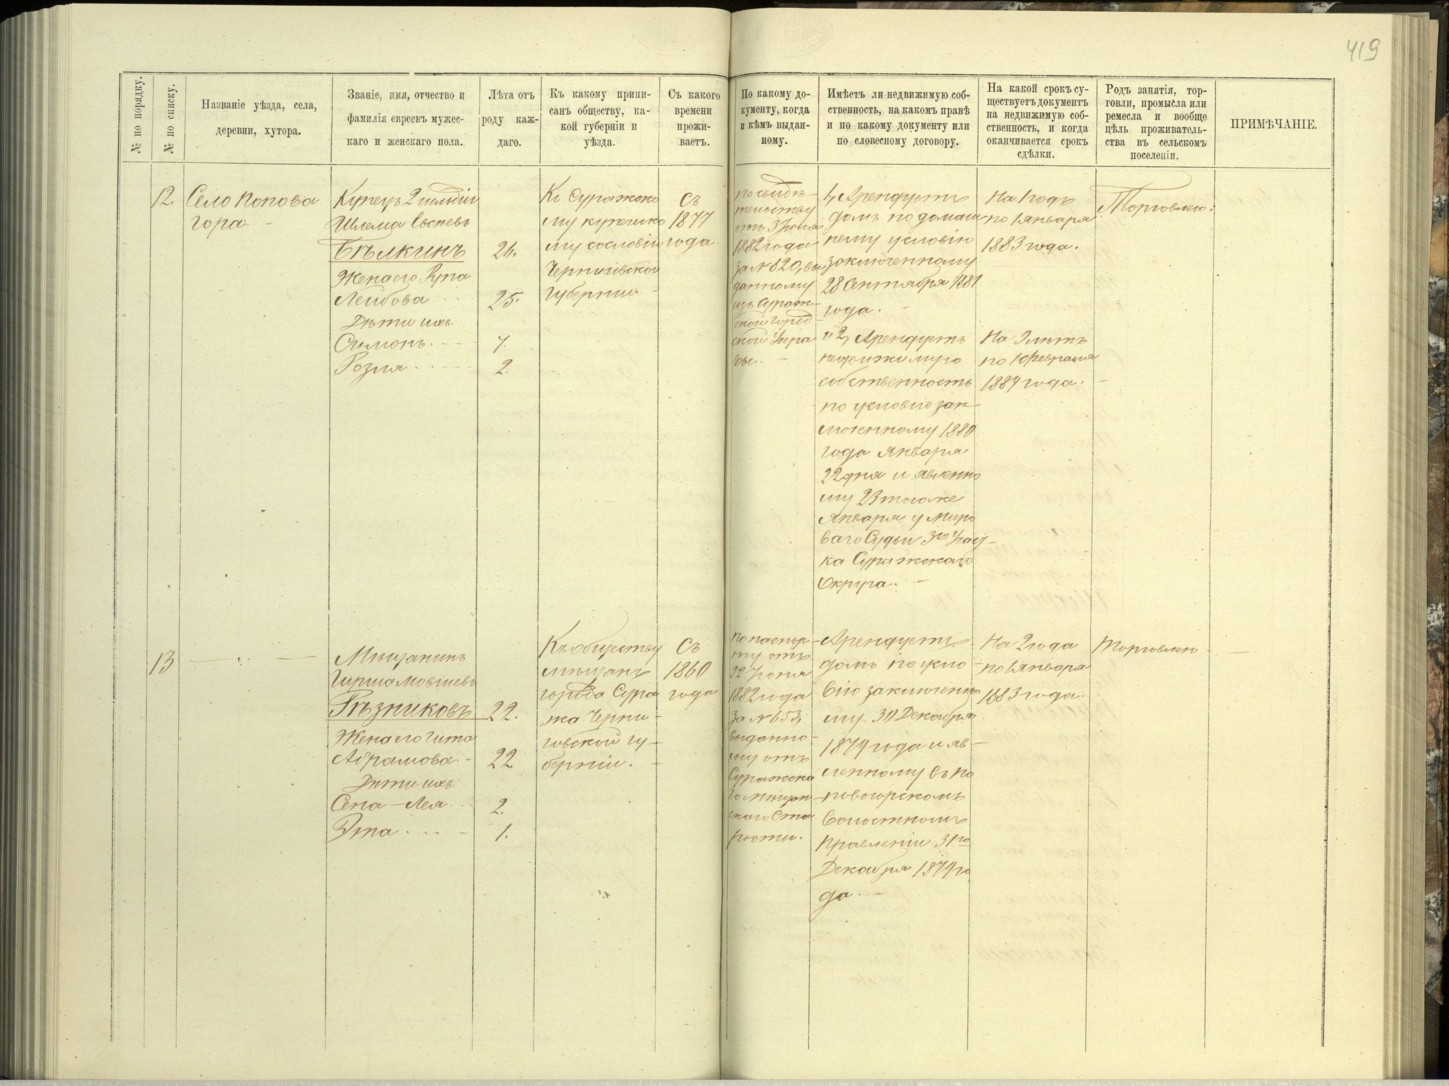 419
№ по порядку.
№ по списку.
Названіе уѣзда, села,
деревни, хутора.
Званіе, имя, отчество и
фамилія евреевъ мужес-
каго и женскаго пола.
Лѣта отъ
роду каж-
даго.
Къ какому припи-
санъ обществу, ка-
кой губерніи и
уѣзда.
Съ какого
времени
прожи-
ваетъ.
По какому до-
кументу, когда
и кѣмъ выдан-
ному.
Имѣетъ ли недвижимую соб-
ственность, на какомъ правѣ
и по какому документу или
по словесному договору.
На какой срокъ су-
ществуетъ документъ
на недвижимую соб-
ственность, и когда
оканчивается срокъ
сдѣлки.
Родъ занятія, тор-
говли, промысла или
ремесла и вообще
цѣль проживатель-
ства въ сельскомъ
поселеніи.
ПРИМѢЧАНІЕ.
12.
Село Попова
гора
Купецъ 2 гильдіи
Шлема
Бѣлкинъ
Жена его
Лейбова
Дѣти ихъ
Симонъ
Розля
26.
25.
2.
Къ Суражско
му купеческо
му сословію
Черниговской
Губерніи
Съ
1877
года
по свидѣ-
тельству
отъ 3
1882 года
за № 820, вы
данному
изъ Сураж-
ской Город-
ской Упра
вы.
1, Арендуетъ
домъ по домаш
нему условію
заключенному
28 Сентября 1881
года.
и 2, Арендуетъ
недвижимую
собственность
по условію зак-
люченному 1880
года Января
22 дня и явленно
му 23 того же
Января у Миро
ваго Судьи 3го Част
ка Суражскаго
Округа.
На 1 годъ
по 1 января
1883 года.
по 1 Февраля
188 года.
Торговлею.
13
Мѣщанинъ
Гирша Мовшевъ
Рѣзниковъ
Жена его Гита
Абрамова
Дѣти ихъ
Лея
Эта
22.
22
2.
1.
Къ обществу
мѣщанъ
города Сура
жа Черни-
говской гу-
берніи.
Съ
1860
года
По паспор-
ту отъ
22
1882 года
за № 653
выданно-
му отъ
Суражска
го Мѣщан-
скаго Ста
росты.
Арендуетъ
домъ по усло-
вію заключенно
му 30 Декабря
1879 года и яв-
ленному въ По
повогорскомъ
Волостномъ
Правленіи 31го
Декабря 1879 го
да
На 2 года
по 1 января
1883 года.
Торговлею